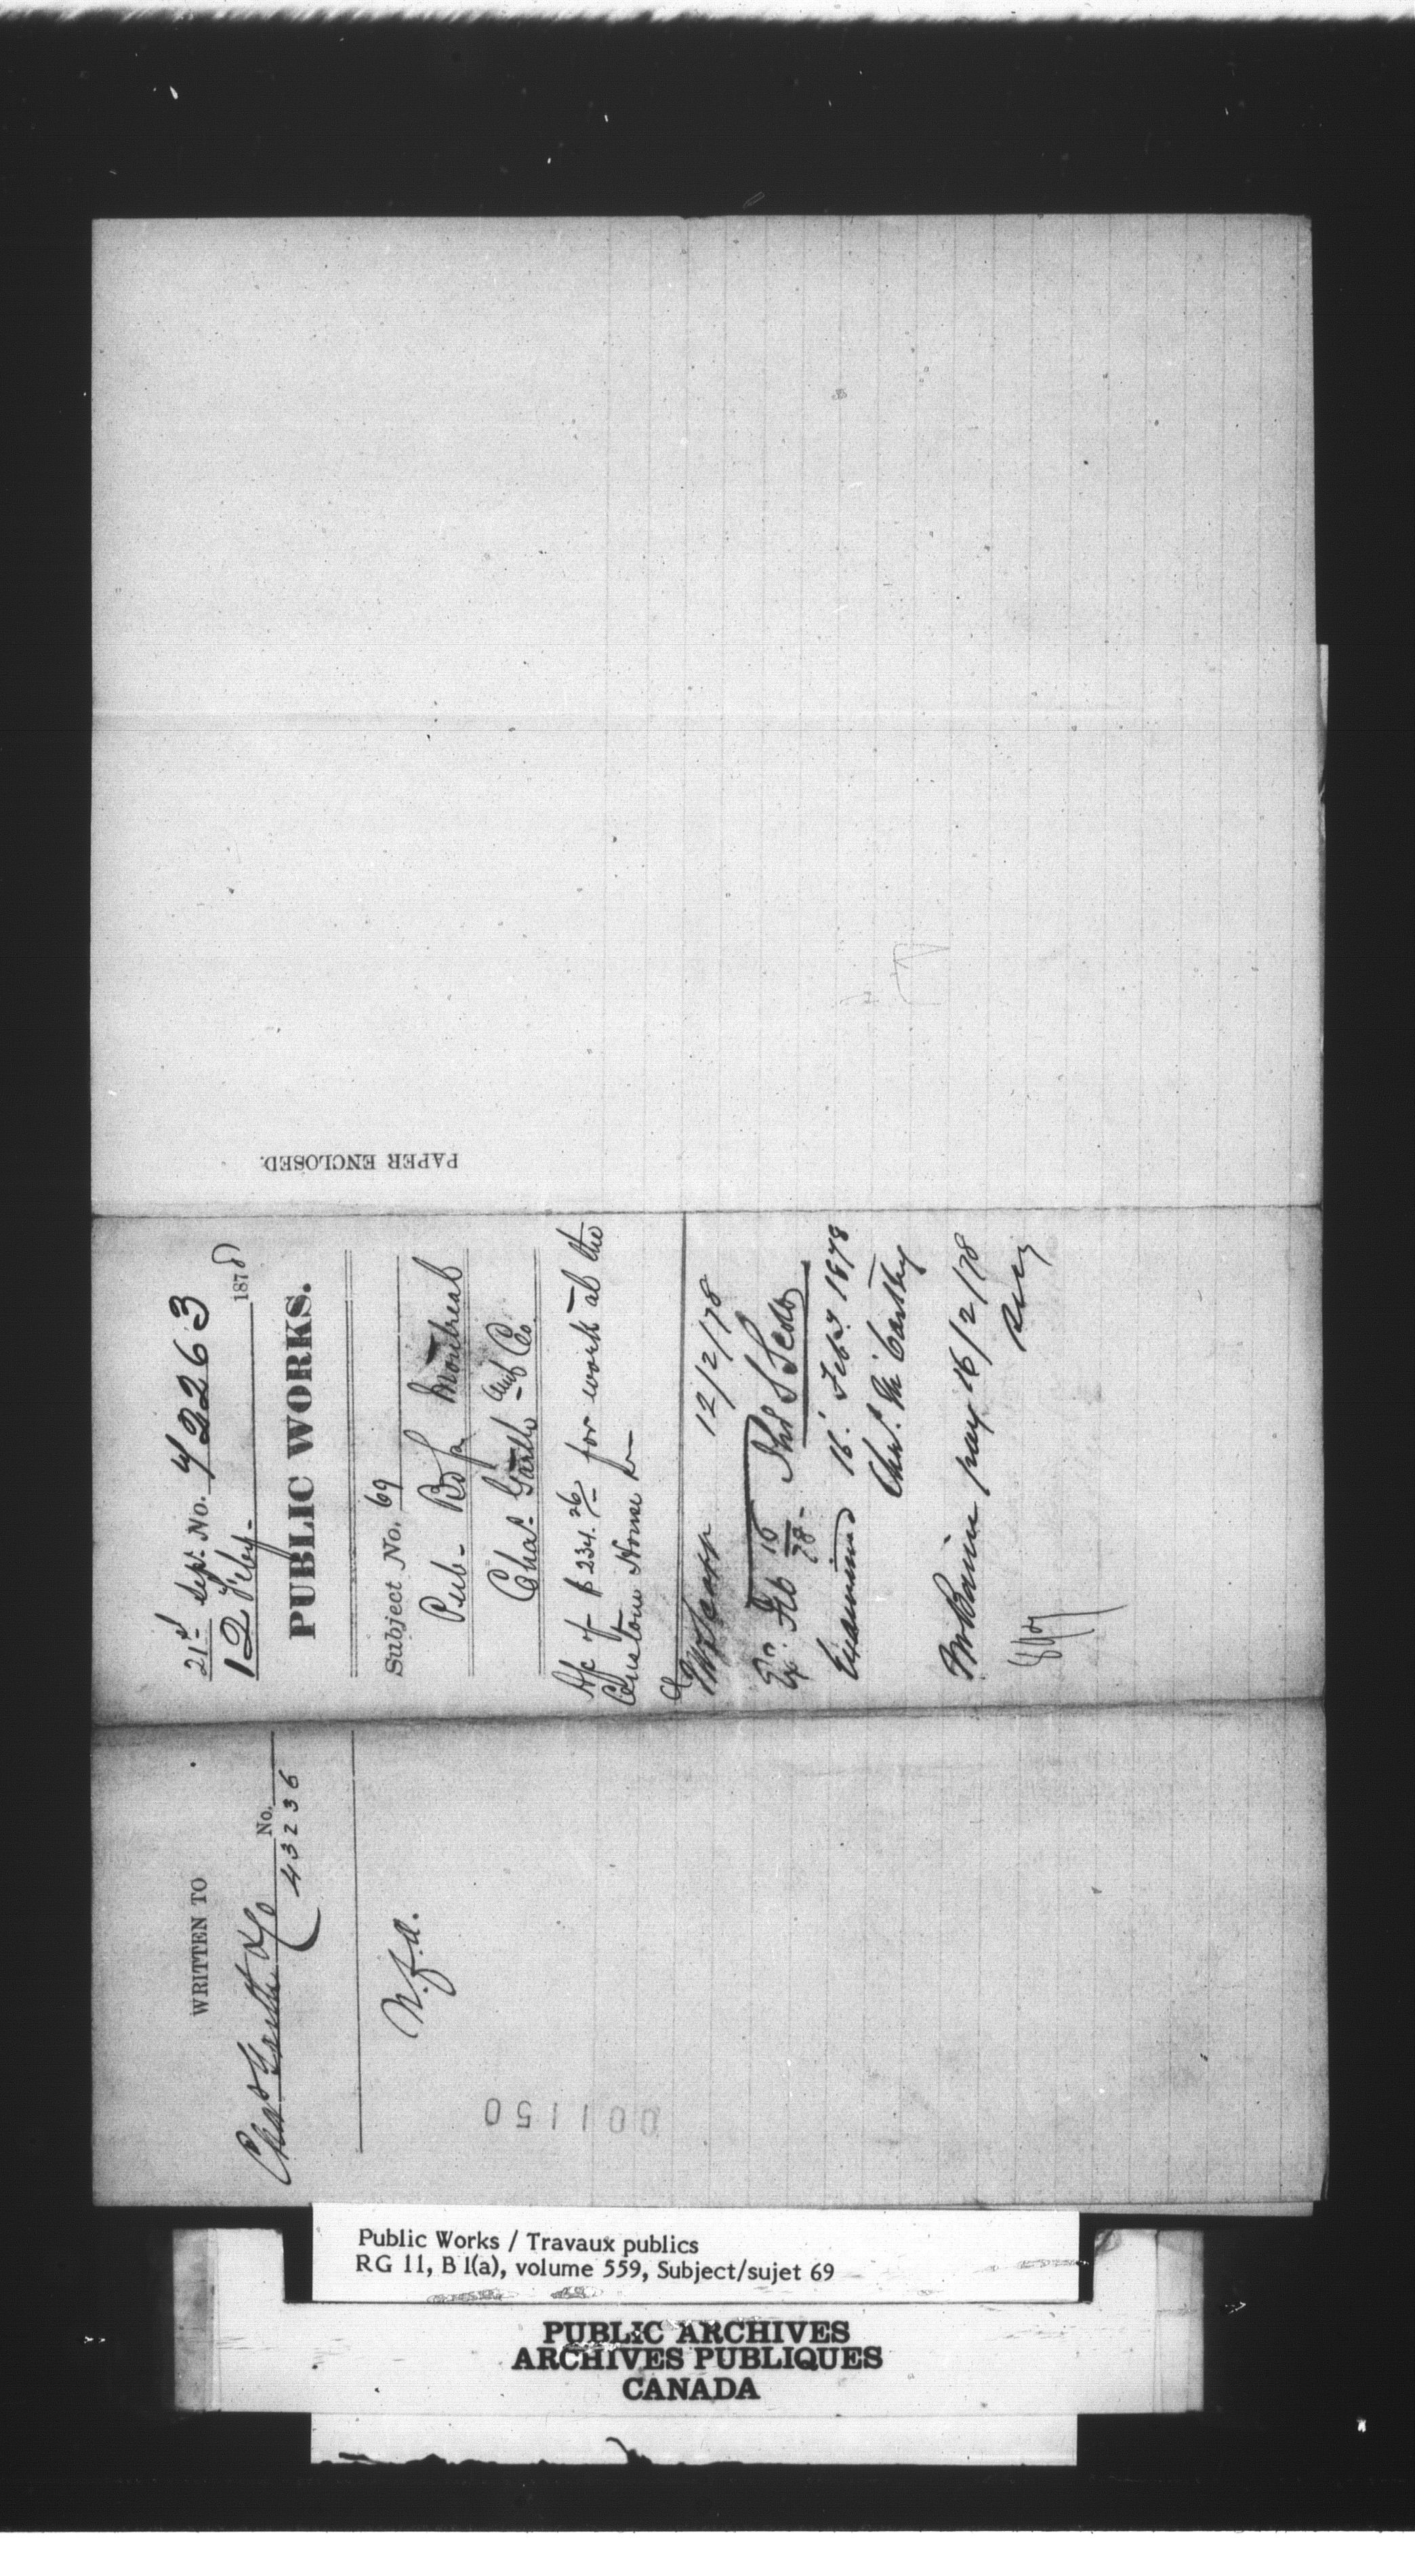 PAPER ENCLOSED.
21st Sepr. No. 72263
12 Feby- 1878
PUBLIC WORKS.
Subject No. 69
Pub- Bdgs Montreal
Chas. Garth and Co.
A/c of $234.26 for work at the
Custom House
12/2/78
Ex. Feb 16/78- Thos S Scott
Examined 16 Feby. 1878
Chas. McCarthy
Mr Baine pay 16/2/78
WRITTEN TO
Chas Garth & Co No.
43236
N.f.a.
001150
Public Works / Travaux publics
RG 11, B 1(a), volume 559, Subject/sujet 69
PUBLIC ARCHIVES
ARCHIVES PUBLIQUES
CANADA